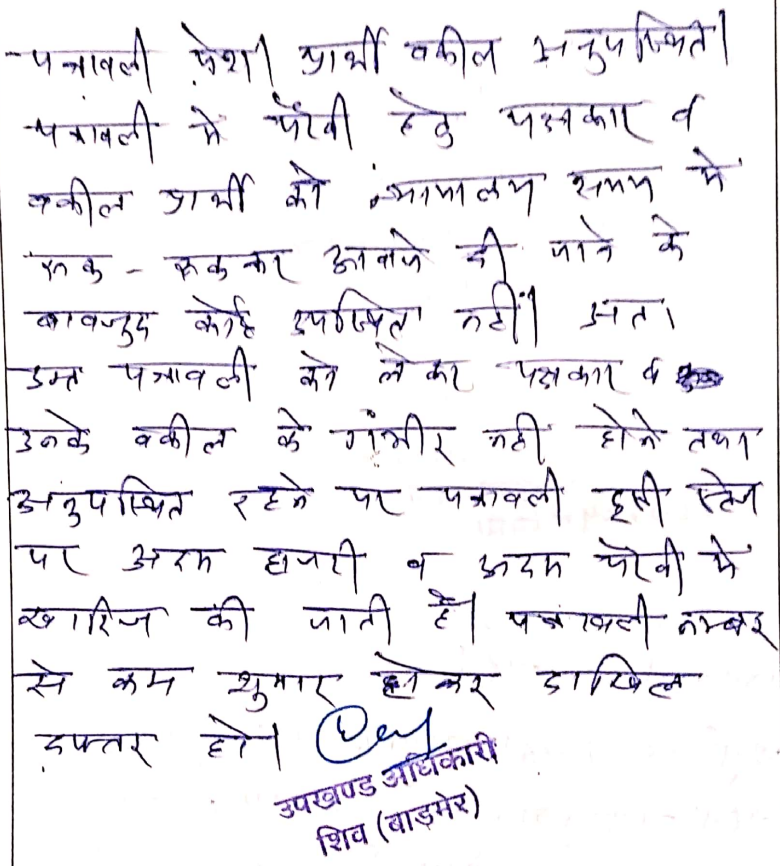 पत्रावली पेश। प्रार्थी वकील अनुपस्थित।
पत्रावली में पैरवी हेतु पक्षकार व
वकील प्रार्थी को न्यायालय समय में
रूक - रूक कर आवाजे दी जाने के
बावजुद कोई उपस्थित नहीं। अतः
उक्त पत्रावली को लेकर पक्षकार व
उनके वकील के गंभीर नही होने तथा
अनुपस्थित रहने पर पत्रावली इसी स्टेज
पर अदम हाजरी व अदम पैरवी में
खारिज की जाती है। पत्रावली नम्बर
से कम शुमार होकर दाखिल
दफ्तर हो।
उपखण्ड अधिकारी
शिव (बाड़मेर)